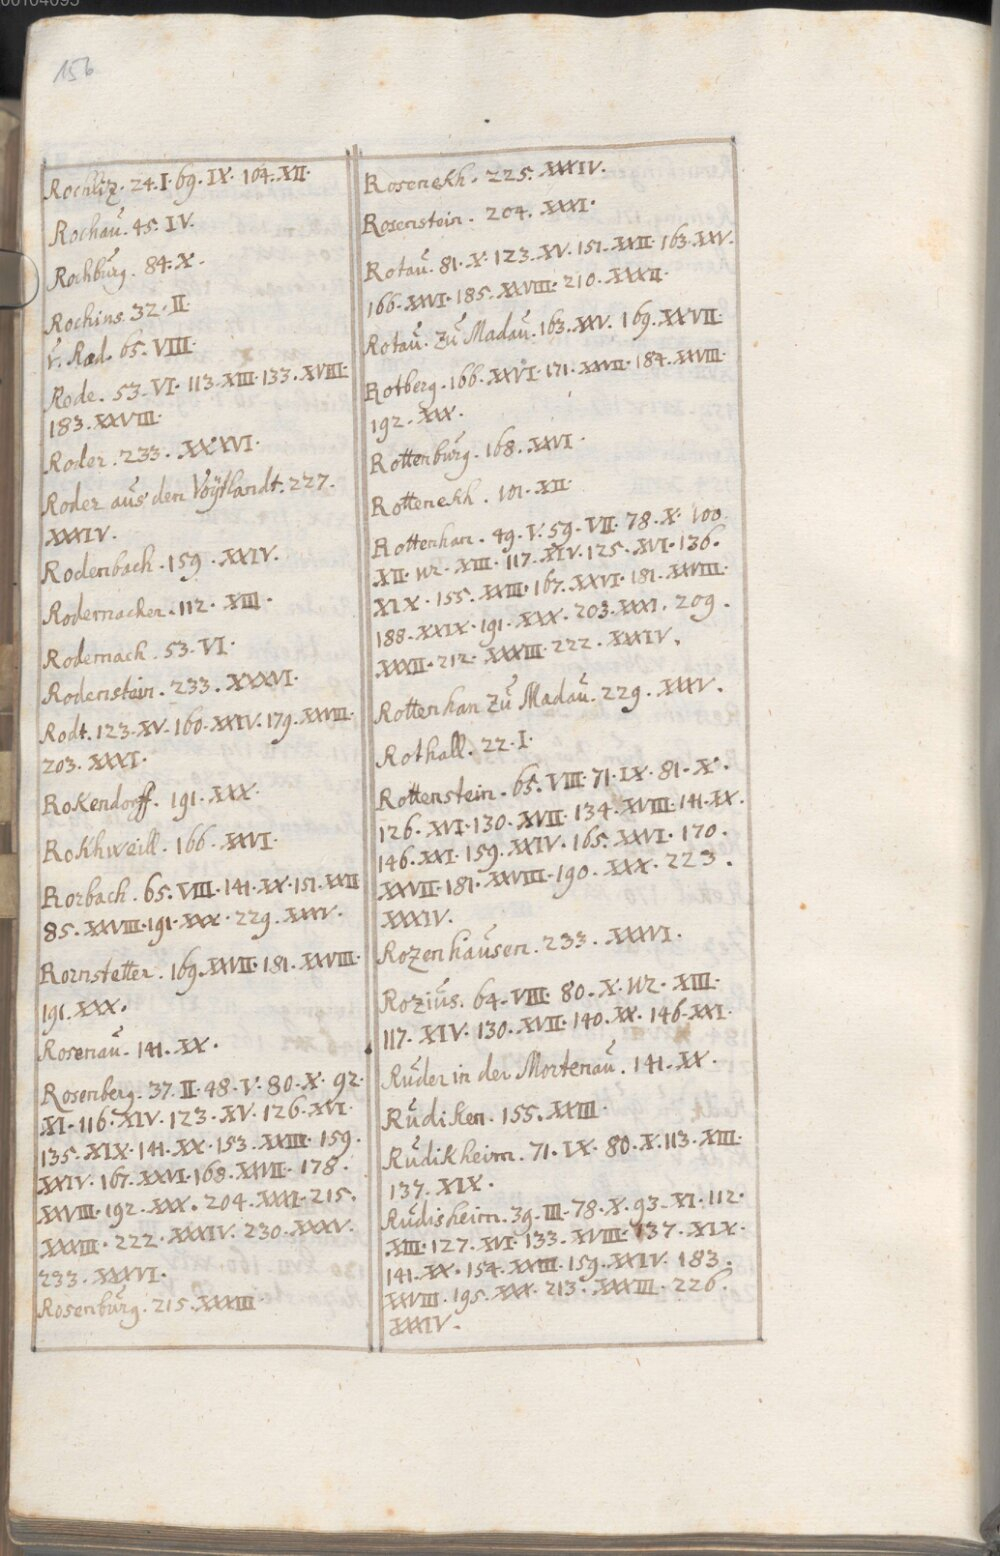 156
Rochliz. 24. I. 69. IX. 104. XII.
Rochaŭ. 45. IV.
Rochbŭrg. 84. X.
Rochins. 32. II.
v. Rad. 65. VIII.
Rode. 53. VI. 113. XIII. 133. XVIII.
183. XXVIII.
Roder. 233. XXXVI.
Roder aus den Voÿtlandt. 227.
XXXIV.
Rodenbach. 159. XXIV.
Rodernacher. 112. XIII.
Rodernach. 53. VI.
Rodenstein. 233. XXXVI.
Rodt. 123. XV. 160. XXIV. 179. XXVIII.
203. XXXI.
Rokendorff. 191. XXX.
Rokhweill. 166. XXVI.
Rorbach. 65. VIII. 141. XX. 151. XXII
85. XXVIII. 191. XXX. 229. XXXV.
Rornstetter. 169. XXVII. 181. XXVIII.
191. XXX.
Rosenaŭ. 141. XX.
Rosenberg. 37. II. 48. V. 80. X. 92.
XI. 116. XIV. 123. XV. 126. XVI.
135. XIX. 141. XX. 153. XXIII. 159.
XXIV. 167. XXVI. 168. XXVII. 178.
XXVIII. 192. XXX. 204. XXXI. 215.
XXXIII. 222. XXXIV. 230. XXXV.
233. XXXVI.
Rosenbŭrg. 215. XXXIII.
Rosenekh. 225. XXXIV.
Rosenstein. 204. XXXI.
Rotaŭ. 81. X. 123. XV. 151. XXII. 163. XXV.
166. XXVI. 185. XXVIII. 210. XXXII.
Rotaŭ. zŭ Madaŭ. 163. XXV. 169. XXVII.
Rotberg. 166. XXVI. 171. XXVII. 184. XXVIII.
192. XXX.
Rottenbŭrg. 168. XXVI.
Rottenekh. 101. XII.
Rottenhan. 49. V. 59. VII. 78. X. 100.
XII. 112. XIII. 117. XIV. 125. XVI. 136.
XIX. 155. XXIII. 167. XXVI. 181. XXVIII.
188. XXIX. 191. XXX. 203. XXXI. 209.
XXXII. 212. XXXIII. 222. XXXIV.
Rottenhan zŭ Madaŭ. 229. XXXV.
Rothall. 22. I.
Rottenstein. 65. VIII. 71. IX. 81. X.
126. XVI. 130. XVII. 134. XVIII. 141. XX.
146. XXI. 159. XXIV. 165. XXVI. 170.
XXVII. 181. XXVIII. 190. XXX. 223.
XXXIV.
Rozenhaŭsen. 233. XXXVI.
Roziŭs. 64. VIII. 80. X. 112. XIII.
117. XIV. 130. XVII. 140. XX. 146. XXI.
Rŭder in der Mortenaŭ. 141. XX.
Rŭdiken. 155. XXIII.
Rŭdikheim. 71. IX. 80. X. 113. XIII.
137. XIX.
Rŭdisheim. 39. III. 78. X. 93. XI. 112.
XIII. 127. XVI. 133. XVIII. 137. XIX.
141. XX. 154. XXIII. 159. XXIV. 183.
XXVIII. 195. XXX. 213. XXXIII. 226.
XXXIV.